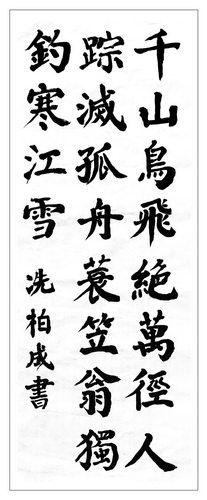 千山鳥飛絶萬徑人
踪滅孤舟蓑笠翁獨
釣寒江雪
冼柏成書